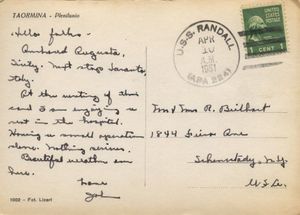 TAORMINA - Plenilunio
Hello folks -
Anchored Augusta,
Sicily. Next stop Taranto,
Italy.
At the writing of this
card I am enjoying a
rest in the hospital.
Having a small operation
done. Nothing serious.
Beautiful weather over
here.
Love
1002 - Fot. Licari
U.S.S. RANDALL
APR
10
A.M.
(APA 224)
UNITED STATES POSTAGE
1 CENT 1
Mr & Mrs R.
1844 Ave
Schenectady, N.Y.
U.S.A.